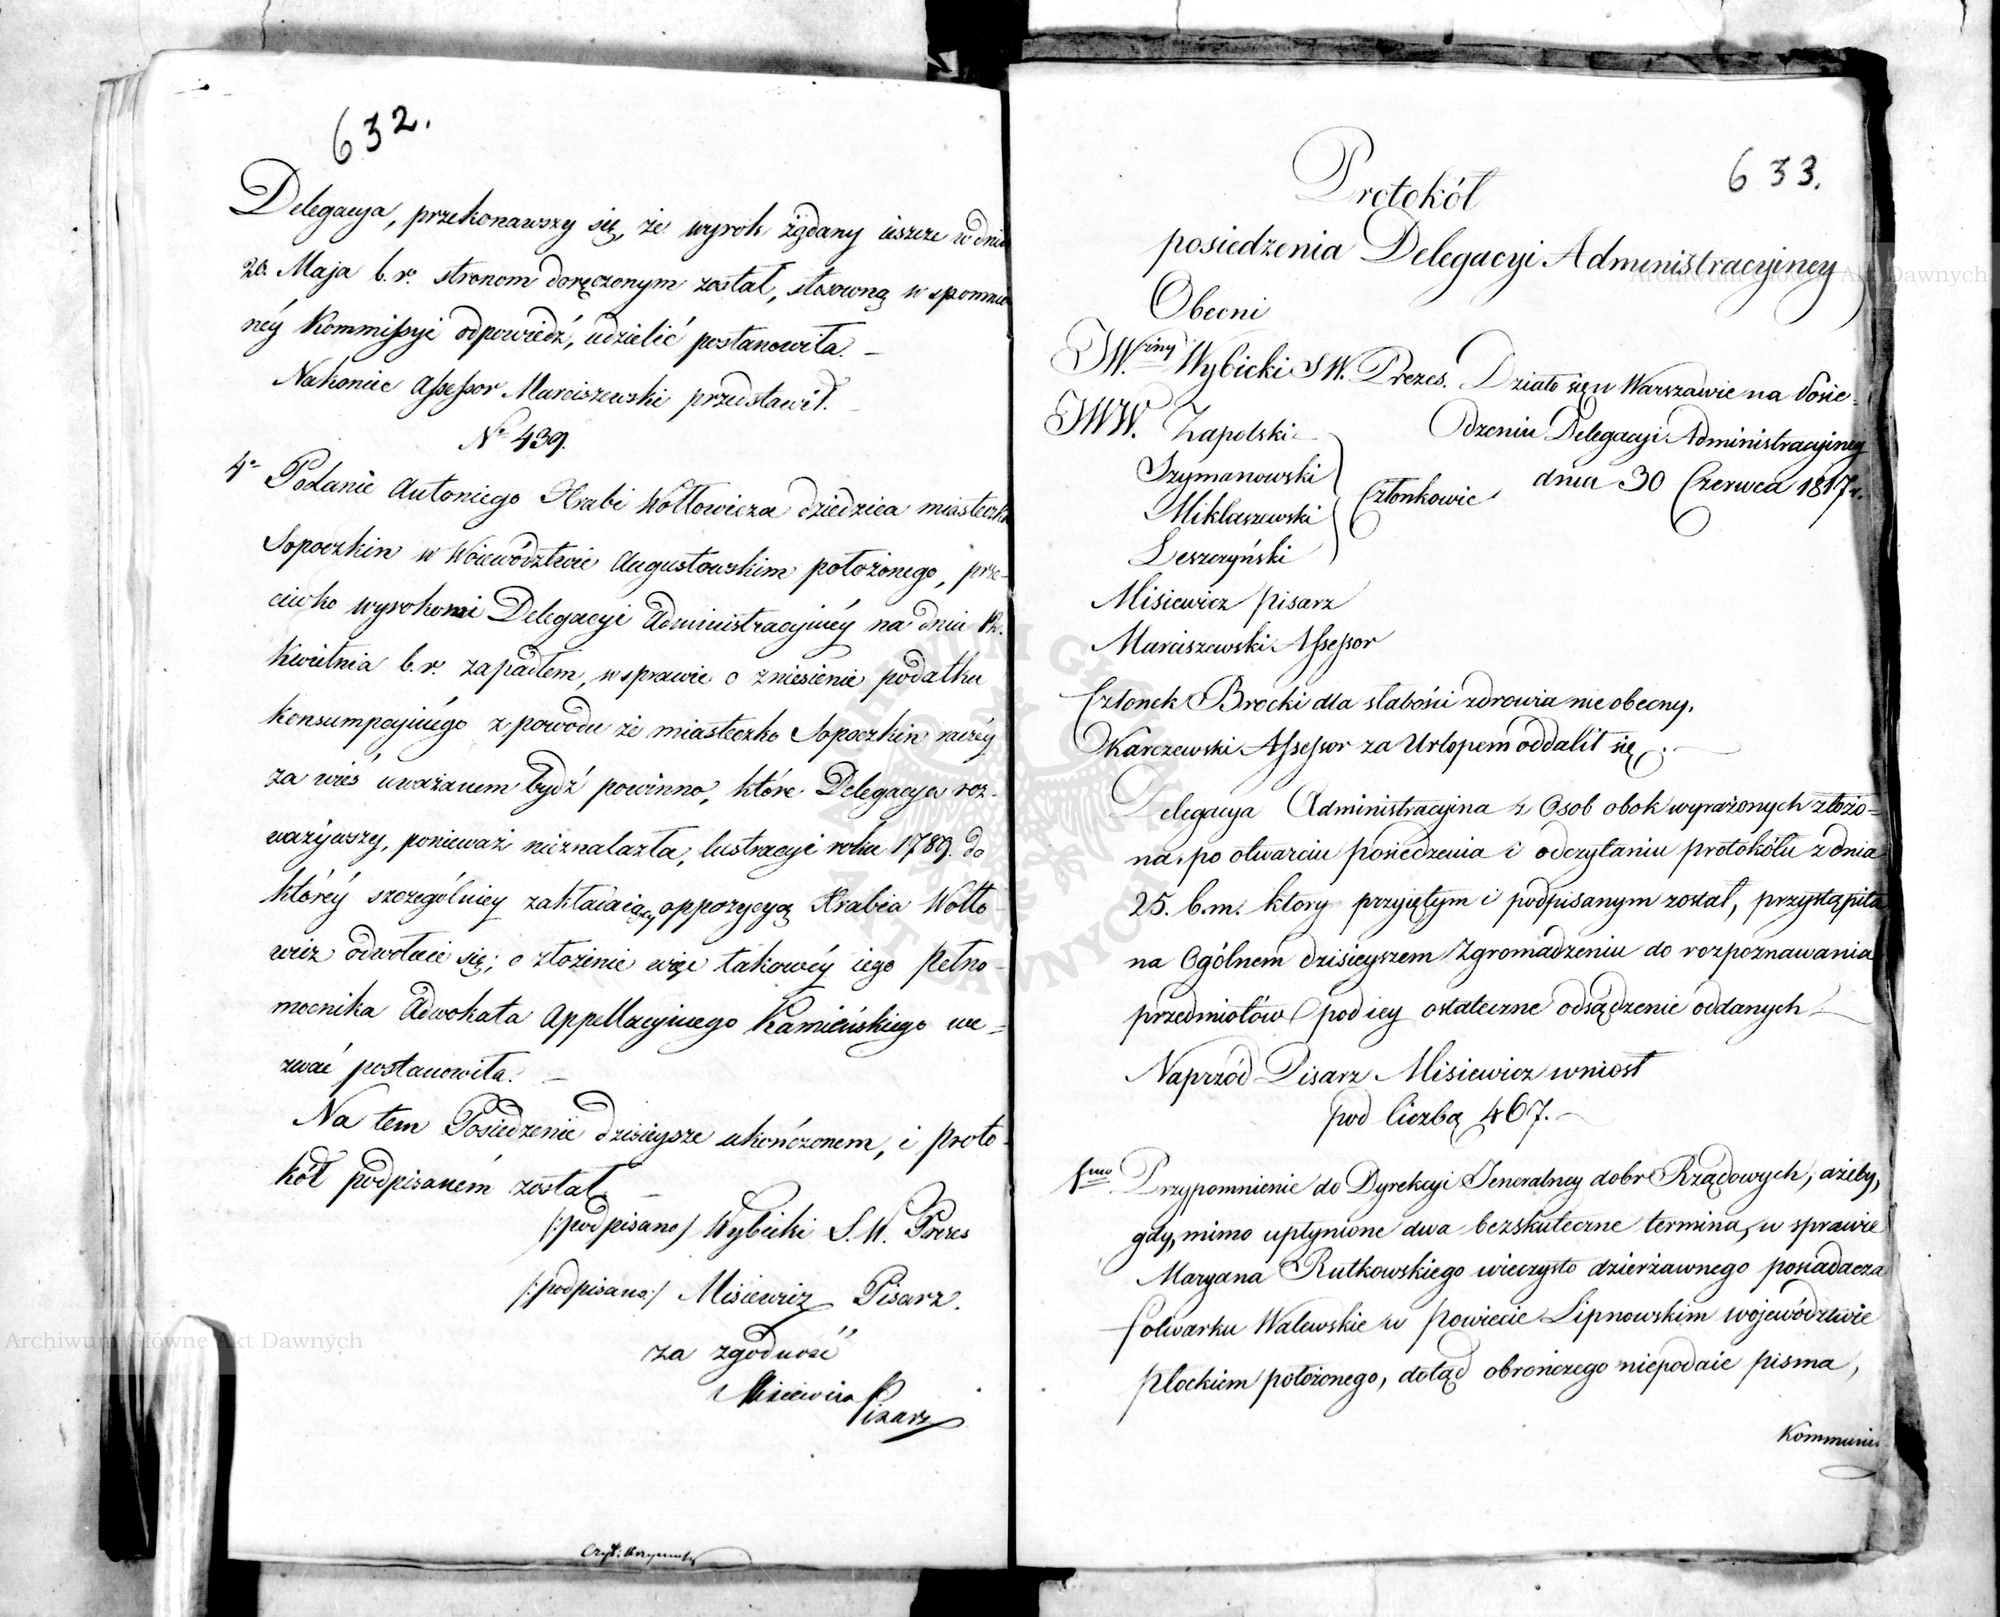 632.
Delegacya, przekonawszy się, że wyrok żądany ieszcze w dniu
20. Maja b. r. stronom doręczonym został, stosowną wspomnio
néy Kommissyi odpowiedź, udzielić postanowiła. —
Nakoniec Assessor Marciszewski przedstawił. —
Nº 439.
4º Podanie Antoniego Hrabi Wołłowicza dziedzica miasteczka
Sopoczkin w Woiewództwie Augustowskim położonego, prze-
ciwko wyrokowi Delegacyi Administracyinéy na dniu 12.
Kwietnia b. r. zapadłem, w sprawie o zniesienie podatku
Konsumpcyinégo z powodu że miasteczko Sopoczkin raczéy
za wieś uważanem bydź powinno, które Delegacya roz-
ważywszy, ponieważ nieznalazła, lustracyi roku 1789. do
któréy szczególniéy zakładaiący oppozycyą Hrabia Wołło-
wicz odwołuie się; o złożenie więc takowéy iego Pełno-
mocnika Adwokata Appellacyinego Kamieńskiego we-
zwać postanowiła. —
Na tem Posiedzenie dzisieysze ukończonem, i proto-
kół podpisaném został. —
/:podpisano/ Wybicki S. W. Prezes
/:podpisano:/ Misiewicz Pisarz.
za zgodność
Misiewicz Pisarz
633.
Protokół
posiedzenia Delegacyi Administracyiney
Obecni
JW.ny Wybicki S W. Prezes. Działo się w Warszawie na Posie-
JWW. Zapolski dzeniu Delegacyi Administracyiney
Szymanowski dnia 30 Czerwca 1817 r.
Miklaszewski Członkowie
Leszczyński
Misiewicz pisarz
Marciszewski Assessor
Członek Brocki dla słabości zdrowia nie obecny.
Karczewski Assessor za Urlopem oddalił się. —
Delegacya Administracyina z Osob obok wyrażonych złożo-
na, po otwarciu posiedzenia i odczytaniu protokółu z dnia
25. b. m. ktory przyiętym i podpisanym został, przystąpiła
na Ogólnem dzisieyszem Zgromadzeniu do rozpoznawania
przedmiotów pod iey ostateczne odsądzenie oddanych —
Naprzód Pisarz Misiewicz wniosł
pod liczbą 467. —
1mo Przypomnienie do Dyrekcyi Jeneralney dobr Rządowych, ażeby,
gdy, mimo upłynione dwa bezskuteczne termina, w sprawie
Maryana Rutkowskiego wieczysto dzierżawnego posiadacza
folwarku Walewskie w Powiecie Lipnowskim województwie
płockiem położonego, dotąd obrończego niepodaie pisma,
Kommuni
Archiwum Główne Akt Dawnych
Archiwum Główne Akt Dawnych